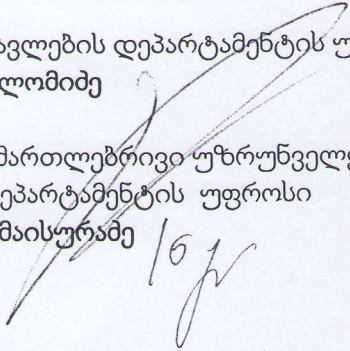 ავლების დეპარტამენტის უ
ლომიძე
მართლებრივი უზრუნველყ
ეპარტამენტის უფროსი
მაისურაძე
16